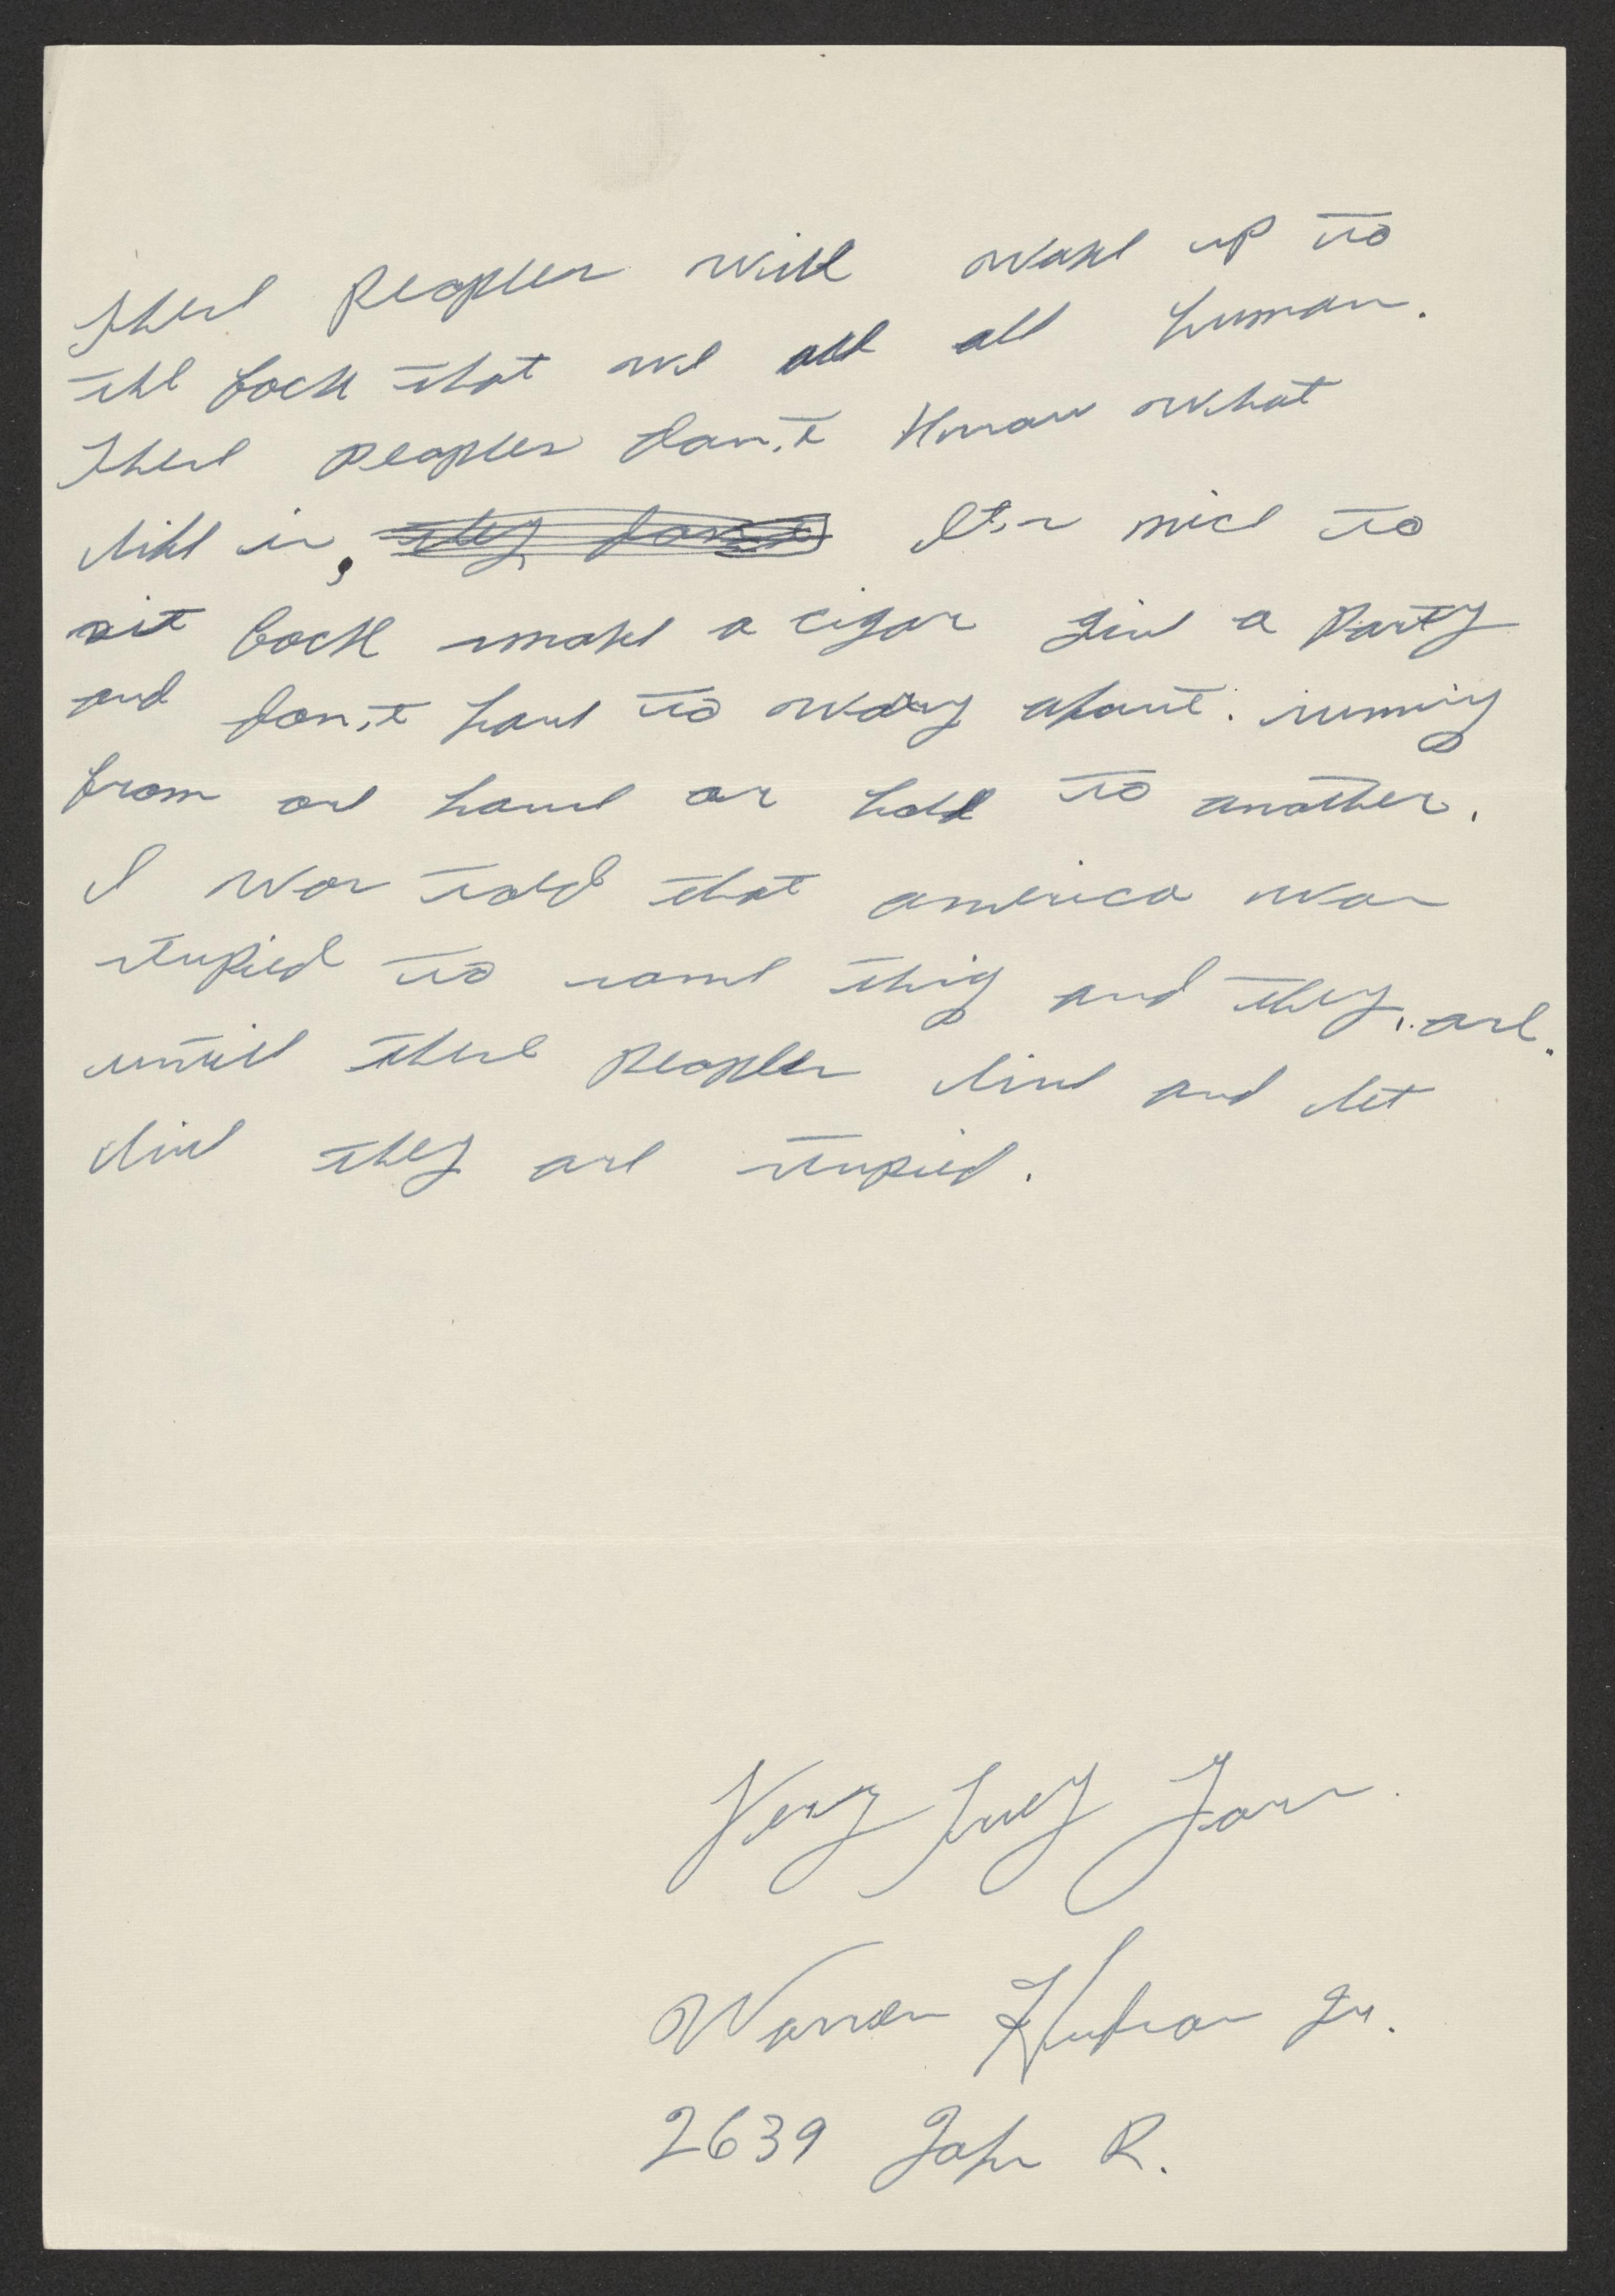 These peoples will wake up to
the fack that we all all human.
These peoples don,t know what
like is, they don,t It,s nice to
sit back smoke a cigar give a Party
and don,t have to wory about. runing
from one house or hole to another.
I was told that america was
stupied to some thig and they, are.
untill these peoples live and let
live they are stupied.
Very Truly Yours.
Warren Hudson Jr.
2639 John R.